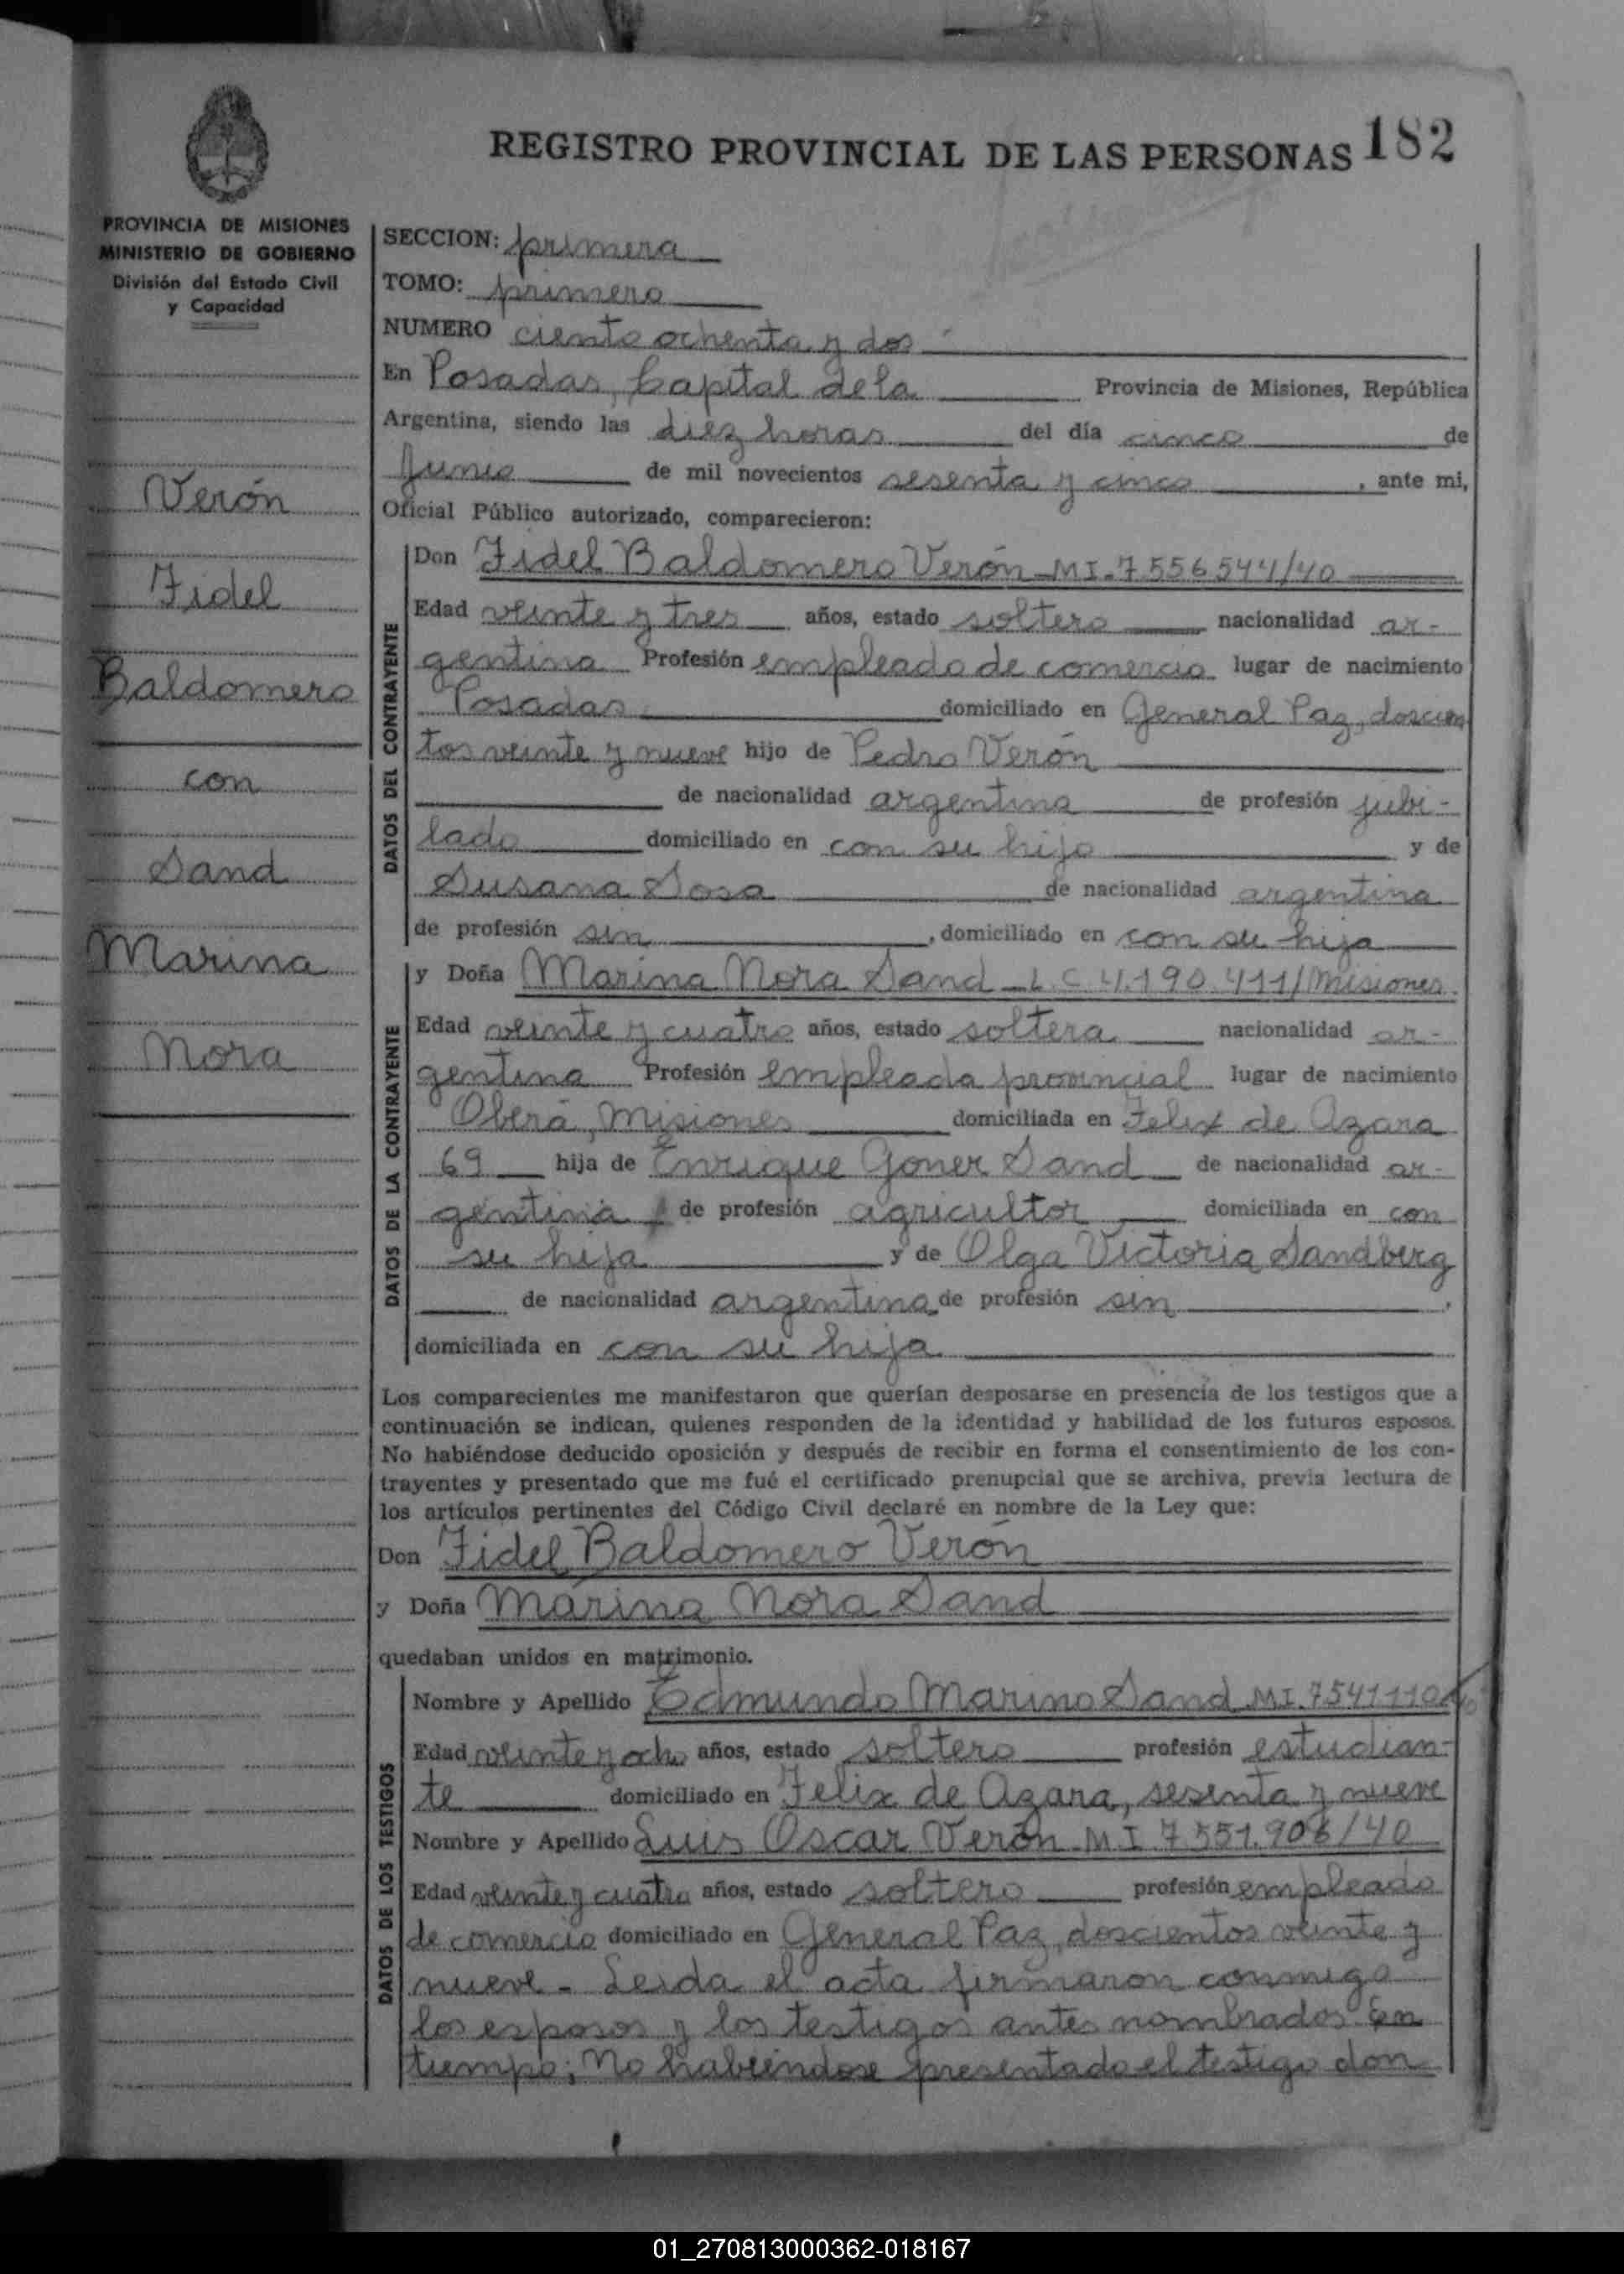 REGISTRO PROVINCIAL DE LAS PERSONAS 182
PROVINCIA DE MISIONES
MINISTERIO DE GOBIERNO
División del Estado Civil
y Capacidad
Verón
Fidel
Baldomero
con
Sand
Marina
Nora
SECCION: primera
TOMO: primero
NUMERO ciento ochenta y dos
En Posadas, Capital de la Provincia de Misiones, República
Argentina, siendo las diez horas del día cinco de
Junio de mil novecientos sesenta y cinco, ante mi,
Oficial Público autorizado, comparecieron:
DATOS DEL CONTRAYENTE
Don Fidel Baldomero Verón - MI. 7556544/40
Edad veinte y tres años, estado soltero nacionalidad ar-
gentina Profesión empleado de comercio lugar de nacimiento
Posadas domiciliado en General Paz, doscien
tos veinte y nueve hijo de Pedro Verón
de nacionalidad argentina de profesión jubi-
lado domiciliado en con su hijo y de
Susana Sosa de nacionalidad argentina
de profesión sin, domiciliado en con su hija
DATOS DE LA CONTRAYENTE
y Doña Marina Nora Sand - L C 4.190.411/Misiones.
Edad veinte y cuatro años, estado soltera nacionalidad ar-
gentina Profesión empleada provincial lugar de nacimiento
Oberá, Misiones domiciliada en Felix de Azara
69 hija de Enrique Goner Sand de nacionalidad ar-
gentina de profesión agricultor domiciliada en con
su hija y de Olga Victoria Sandberg
de nacionalidad argentina de profesión sin,
domiciliada en con su hija
Los comparecientes me manifestaron que querían desposarse en presencia de los testigos que a
continuación se indican, quienes responden de la identidad y habilidad de los futuros esposos.
No habiéndose deducido oposición y después de recibir en forma el consentimiento de los con-
trayentes y presentado que me fué el certificado prenupcial que se archiva, previa lectura de
los artículos pertinentes del Código Civil declaré en nombre de la Ley que:
Don Fidel Baldomero Verón
y Doña Marina Nora Sand
quedaban unidos en matrimonio.
DATOS DE LOS TESTIGOS
Nombre y Apellido Edmundo Marino Sand MI. 7541110
Edad veinte y ocho años, estado soltero profesión estudian-
te domiciliado en Felix de Azara, sesenta y nueve
Nombre y Apellido Luis Oscar Verón - M.I 7.551.906/40
Edad veinte y cuatro años, estado soltero profesión empleado
de comercio domiciliado en General Paz, doscientos veinte y
nueve - Leida el acta firmaron conmigo
los esposos y los testigos antes nombrados. En
tiempo; No habiéndose presentado el testigo don
01_270813000362-018167